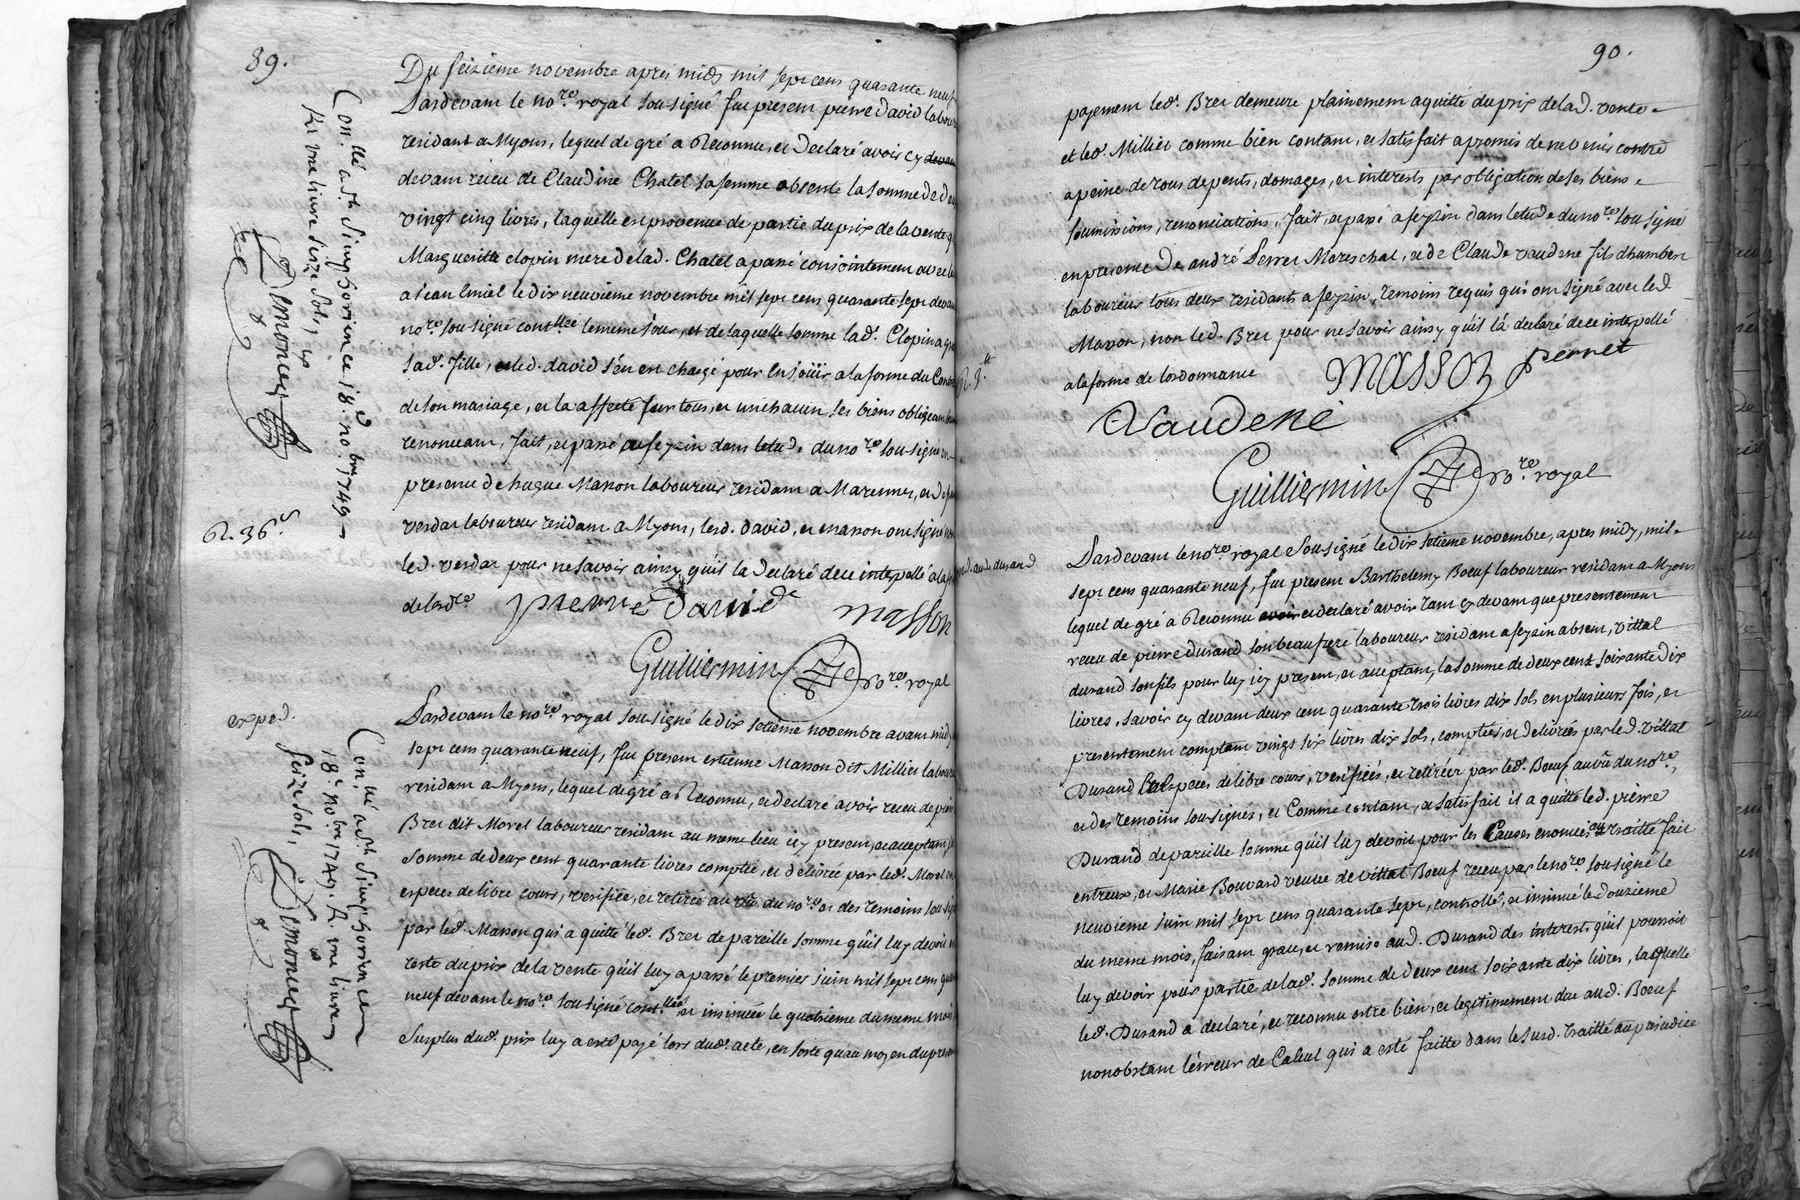 89.
Du seizieme novembre apres midy mil sept cens quarante neuf
Pardevant le no.re royal sousigné fut present pierre david labour
residant a Myons, lequel de gré a Reconnu, et declaré avoir cy devant
devant receu de Claudine Chatel sa femme absente la somme de
vingt cinq livres, laquelle est provenue de partie du prix de la vente q
Margueritte clopin mere de lad. Chatel a passé conjointement avec
a Jean Emiel le dix neuvieme novembre mil sept cens quarante sept devan
no.re sousigné cont.llée le meme jour, et de laquelle somme lad.e Clopin a
sad. fille, et led. david s'en est chargé pour en jouïr a la forme du Cont
de son mariage, et la affecté sur tous, et un chacun ses biens obligeant
renonceant, fait, et passé a feyzin dans letude du no.re sousigné en
presence de hugue Masson laboureur residant a Marennes, et de
verdat laboureur residant a Myons, lesd. david, et masson ont signé non
led. verdat pour ne savoir ainsy qu'il la declaré de ce interpellé a la f
de lord.ce
pierre david
masson
Guilliermin no.re royal
Con.llé a S.t Simphorien ce 18.e no.bre 1749
R. une livre seize sols,
Demoncel
R. 36.s
exped.
Pardevant le no.re royal sousigné le dix setieme novembre avant midy
sept cens quarante neuf, fut present estienne Masson dit Millier labour
residant a Myons, lequel de gré a Reconnu, et declaré avoir receu de pier
Bret dit Morel laboureur residant au meme lieu icy present, et acceptant
somme de deux cent quarante livres comptée, et délivrée par led. Morel en
especes de libre cours, verifiée, et retirée au vû du no.re et des temoins sousig
par led. Masson qui a quitté led. Bret de pareille somme qu'il luy devoit
reste du prix de la vente qu'il luy a passé le premier juin mil sept cens quar
neuf devant le no.re sousigné cont.llée et insinuée le quatrieme du meme mois
Surplus dud. prix luy a esté payé lors dud. acte, en sorte quau moyen du presen
Con.llé a S.t Simphorien ce
18.e no.bre 1749. R. une livre
seize sols,
Demoncel
90.
payement led. Bret demeure plainement aquitté du prix de lad. vente
et led. Millier comme bien contant, et satisfait a promis de ne venir contre
a peine de tous depents, domages, et interests par obligation de ses biens
soumissions, renonciations, fait, et passé a feyzin dans letude du no.re sousigné
en presence de andré Perret Mareschal, et de Claude vaudene fils dhumbert
laboureur tous deux residants a feyzin temoins requis qui ont signé avec led
Masson, non led. Bret pour ne savoir ainsy qu'il la declaré de ce interpellé
a la forme de lordonnance
masson
perret
Vaudene
Guilliermin no.re royal
Pardevant le no.re royal sousigné le dix setieme novembre, apres midy, mil
sept cens quarante neuf, fut present Barthelemy Boeuf laboureur residant a Myons
lequel de gré a Reconnu et declaré avoir tant cy devant que presentement
receu de pierre durand son beaufrere laboureur residant a feyzin absent, vittal
durand son fils pour luy icy present, et acceptant, la somme de deux cent soixante dix
livres, savoir cy devant deux cent quarante trois livres dix sols en plusieurs fois, et
presentement comptant vingt six livres dix sols, comptées, et delivrées par led. vittal
Durand en especes de libre cours, verifiées, et retirées par led. Boeuf au vû du no.re,
et des temoins sousignés, et Comme contant, et satisfait il a quitté led. pierre
Durand de pareille somme qu'il luy devoit pour les Causes enoncées au traitté fait
entreux, et Marie Bouvard veuve de vittal Boeuf receu par le no.re sousigné le
neuvieme juin mil sept cens quarante sept, controllé, et insinué le douzieme
du meme mois, faisant grace, et remise aud. Durand des interests qu'il pourroit
luy devoir pour partie de lad. somme de deux cent soixante dix livres, laquelle
led. Durand a declaré, et reconnu estre bien, et legitimement due aud. Boeuf
nonobstant lerreur de Calcul qui a esté faitte dans le susd. traitté au prejudice